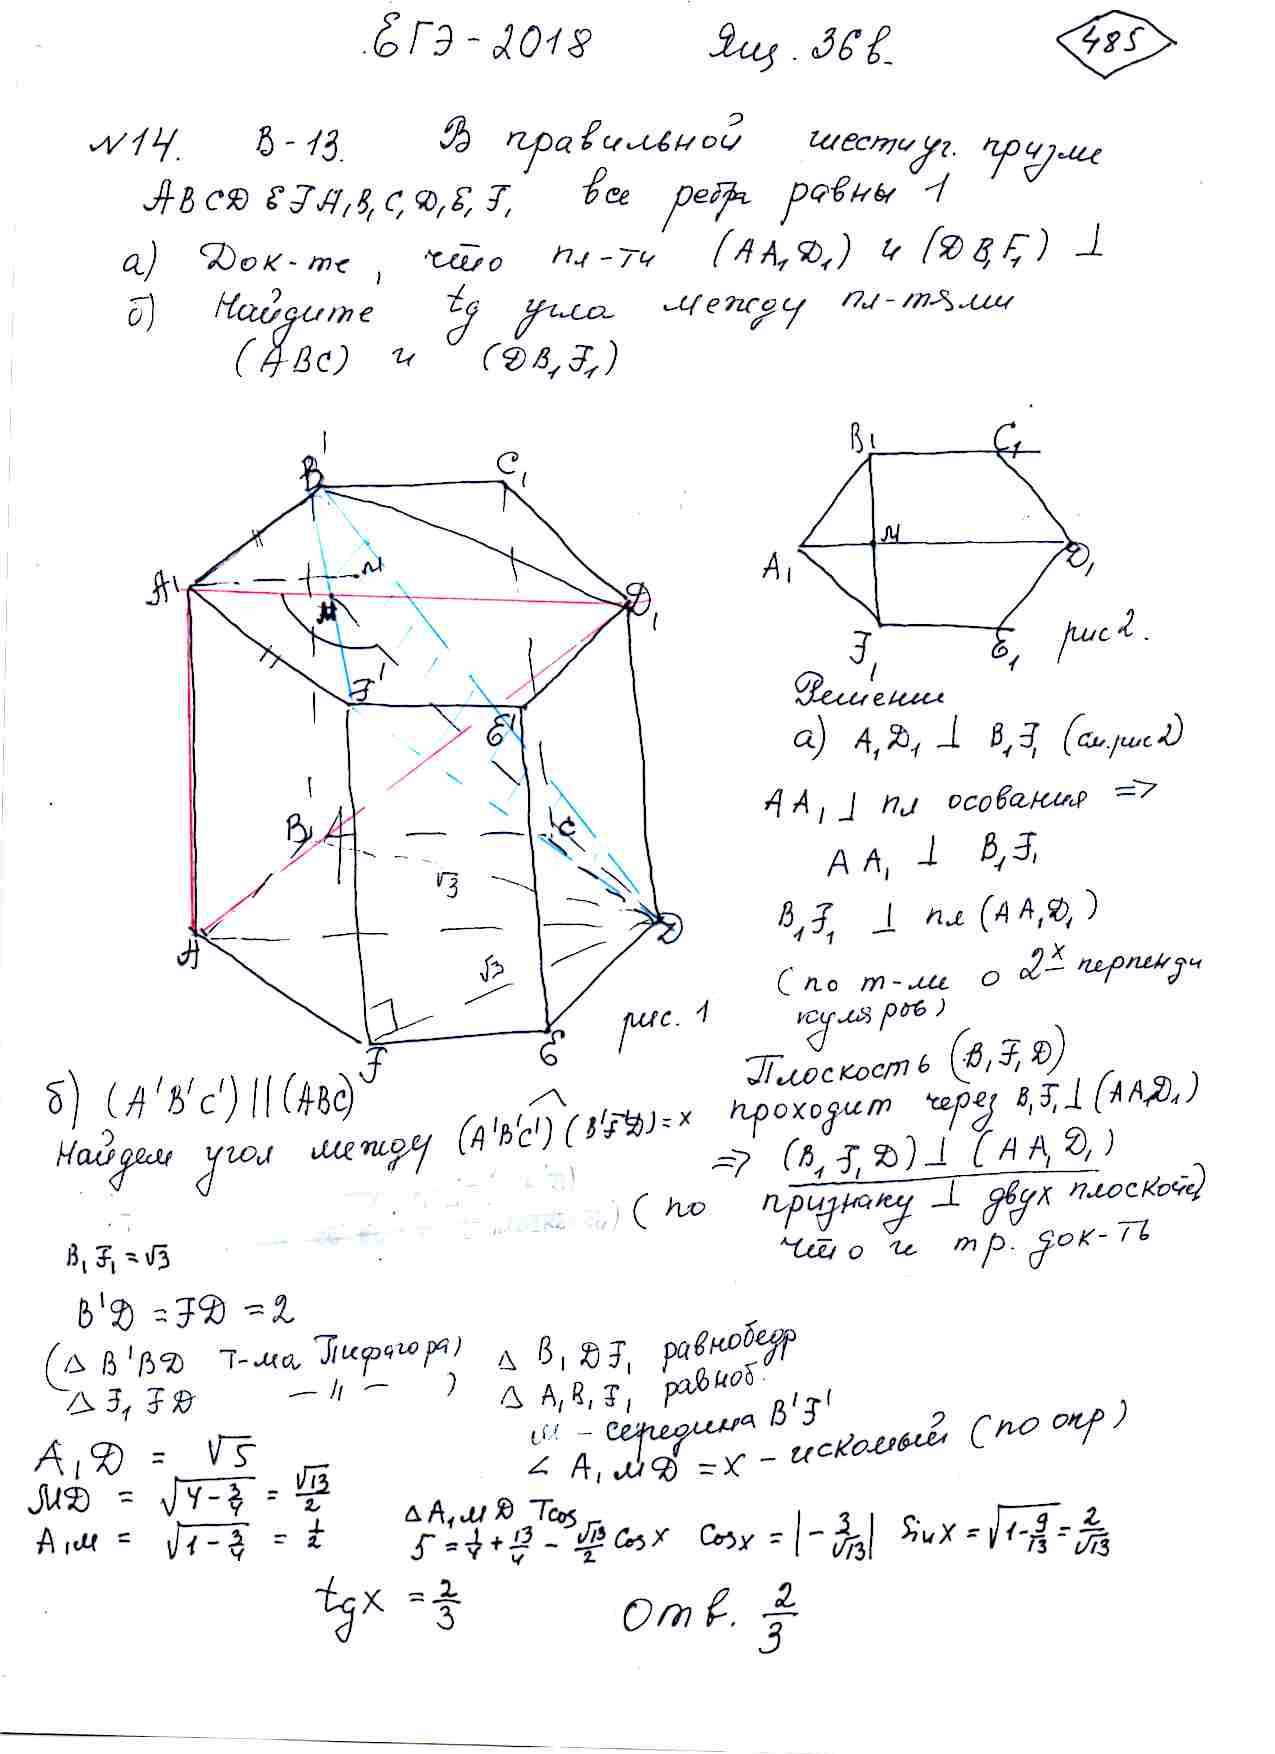 ЕГЭ-2018 Ящ. 36 в. 485
№14. В-13. В правильной шестиуг. призме
ABCDEFA₁B₁C₁D₁E₁F₁ все ребра равны 1
а) Док-те, что пл-ти (AA₁D₁) и (DB₁F₁) ⊥
б) Найдите tg угла между пл-тями
(ABC) и (DB₁F₁)
B' C₁
A₁ N M D₁
F' E'
B₁ C
√3
A D
√3
F E
рис. 1
B₁ C₁
A₁ M D₁
F₁ E₁
рис 2.
Решение
а) A₁D₁ ⊥ B₁F₁ (см. рис 2)
AA₁ ⊥ пл осования =>
AA₁ ⊥ B₁F₁
B₁F₁ ⊥ пл (AA₁D₁)
(по т-ме о 2х перпенди
куляров)
Плоскость (B₁F₁D)
проходит через B₁F₁⊥(AA₁D₁)
=> (B₁F₁D)⊥(AA₁D₁)
(по признаку ⊥ двух плоскостей)
что и тр. док-ть
б) (A'B'C')||(ABC)
Найдем угол между (A'B'C')(B'F'D)=x
B₁F₁=√3
B'D = FD = 2
(△ B'BD т-ма Пифагора)
△ F₁FD —〃— )
△ B₁DF₁ равнобедр
△ A₁B₁F₁ равноб.
M - середина B'F'
∠ A₁MD = x - искомый (по опр)
A₁D = √5
MD = √(4-3/4) = √13/2
A₁M = √(1-3/4) = 1/2
△A₁MD Tcos
5=1/4+13/4-√13/2 cosx cosx=|-3/√13| sinx=√(1-9/13)=2/√13
tgx = 2/3 Отв. 2/3